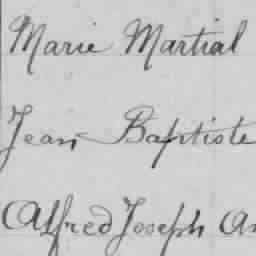 Marie Martial
Jean Baptiste
Alfred Joseph